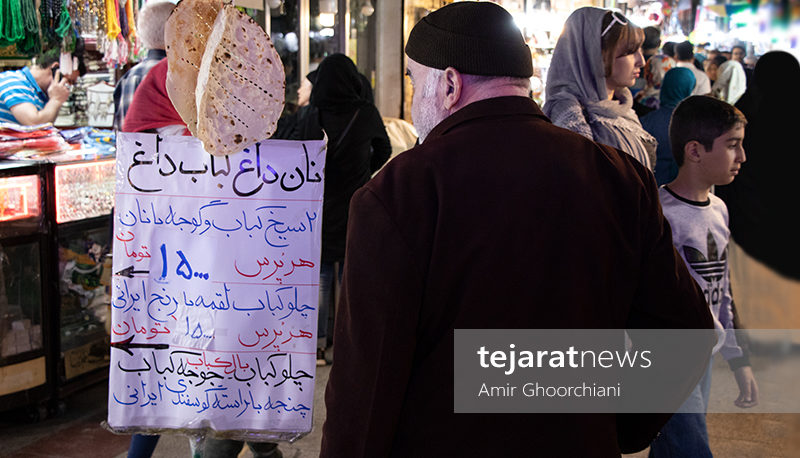 نان داغ کباب داغ
۲ سیخ کباب و گوجه با نان
هر پرس ۱۵۰۰۰ تومان
چلو کباب لقمه با برنج ایرانی
هر پرس ۱۵۰۰۰ تومان
چلو کباب جوجه کباب
چنجه با راسته گوسفندی ایرانی
tejaratnews
Amir Ghoorchiani